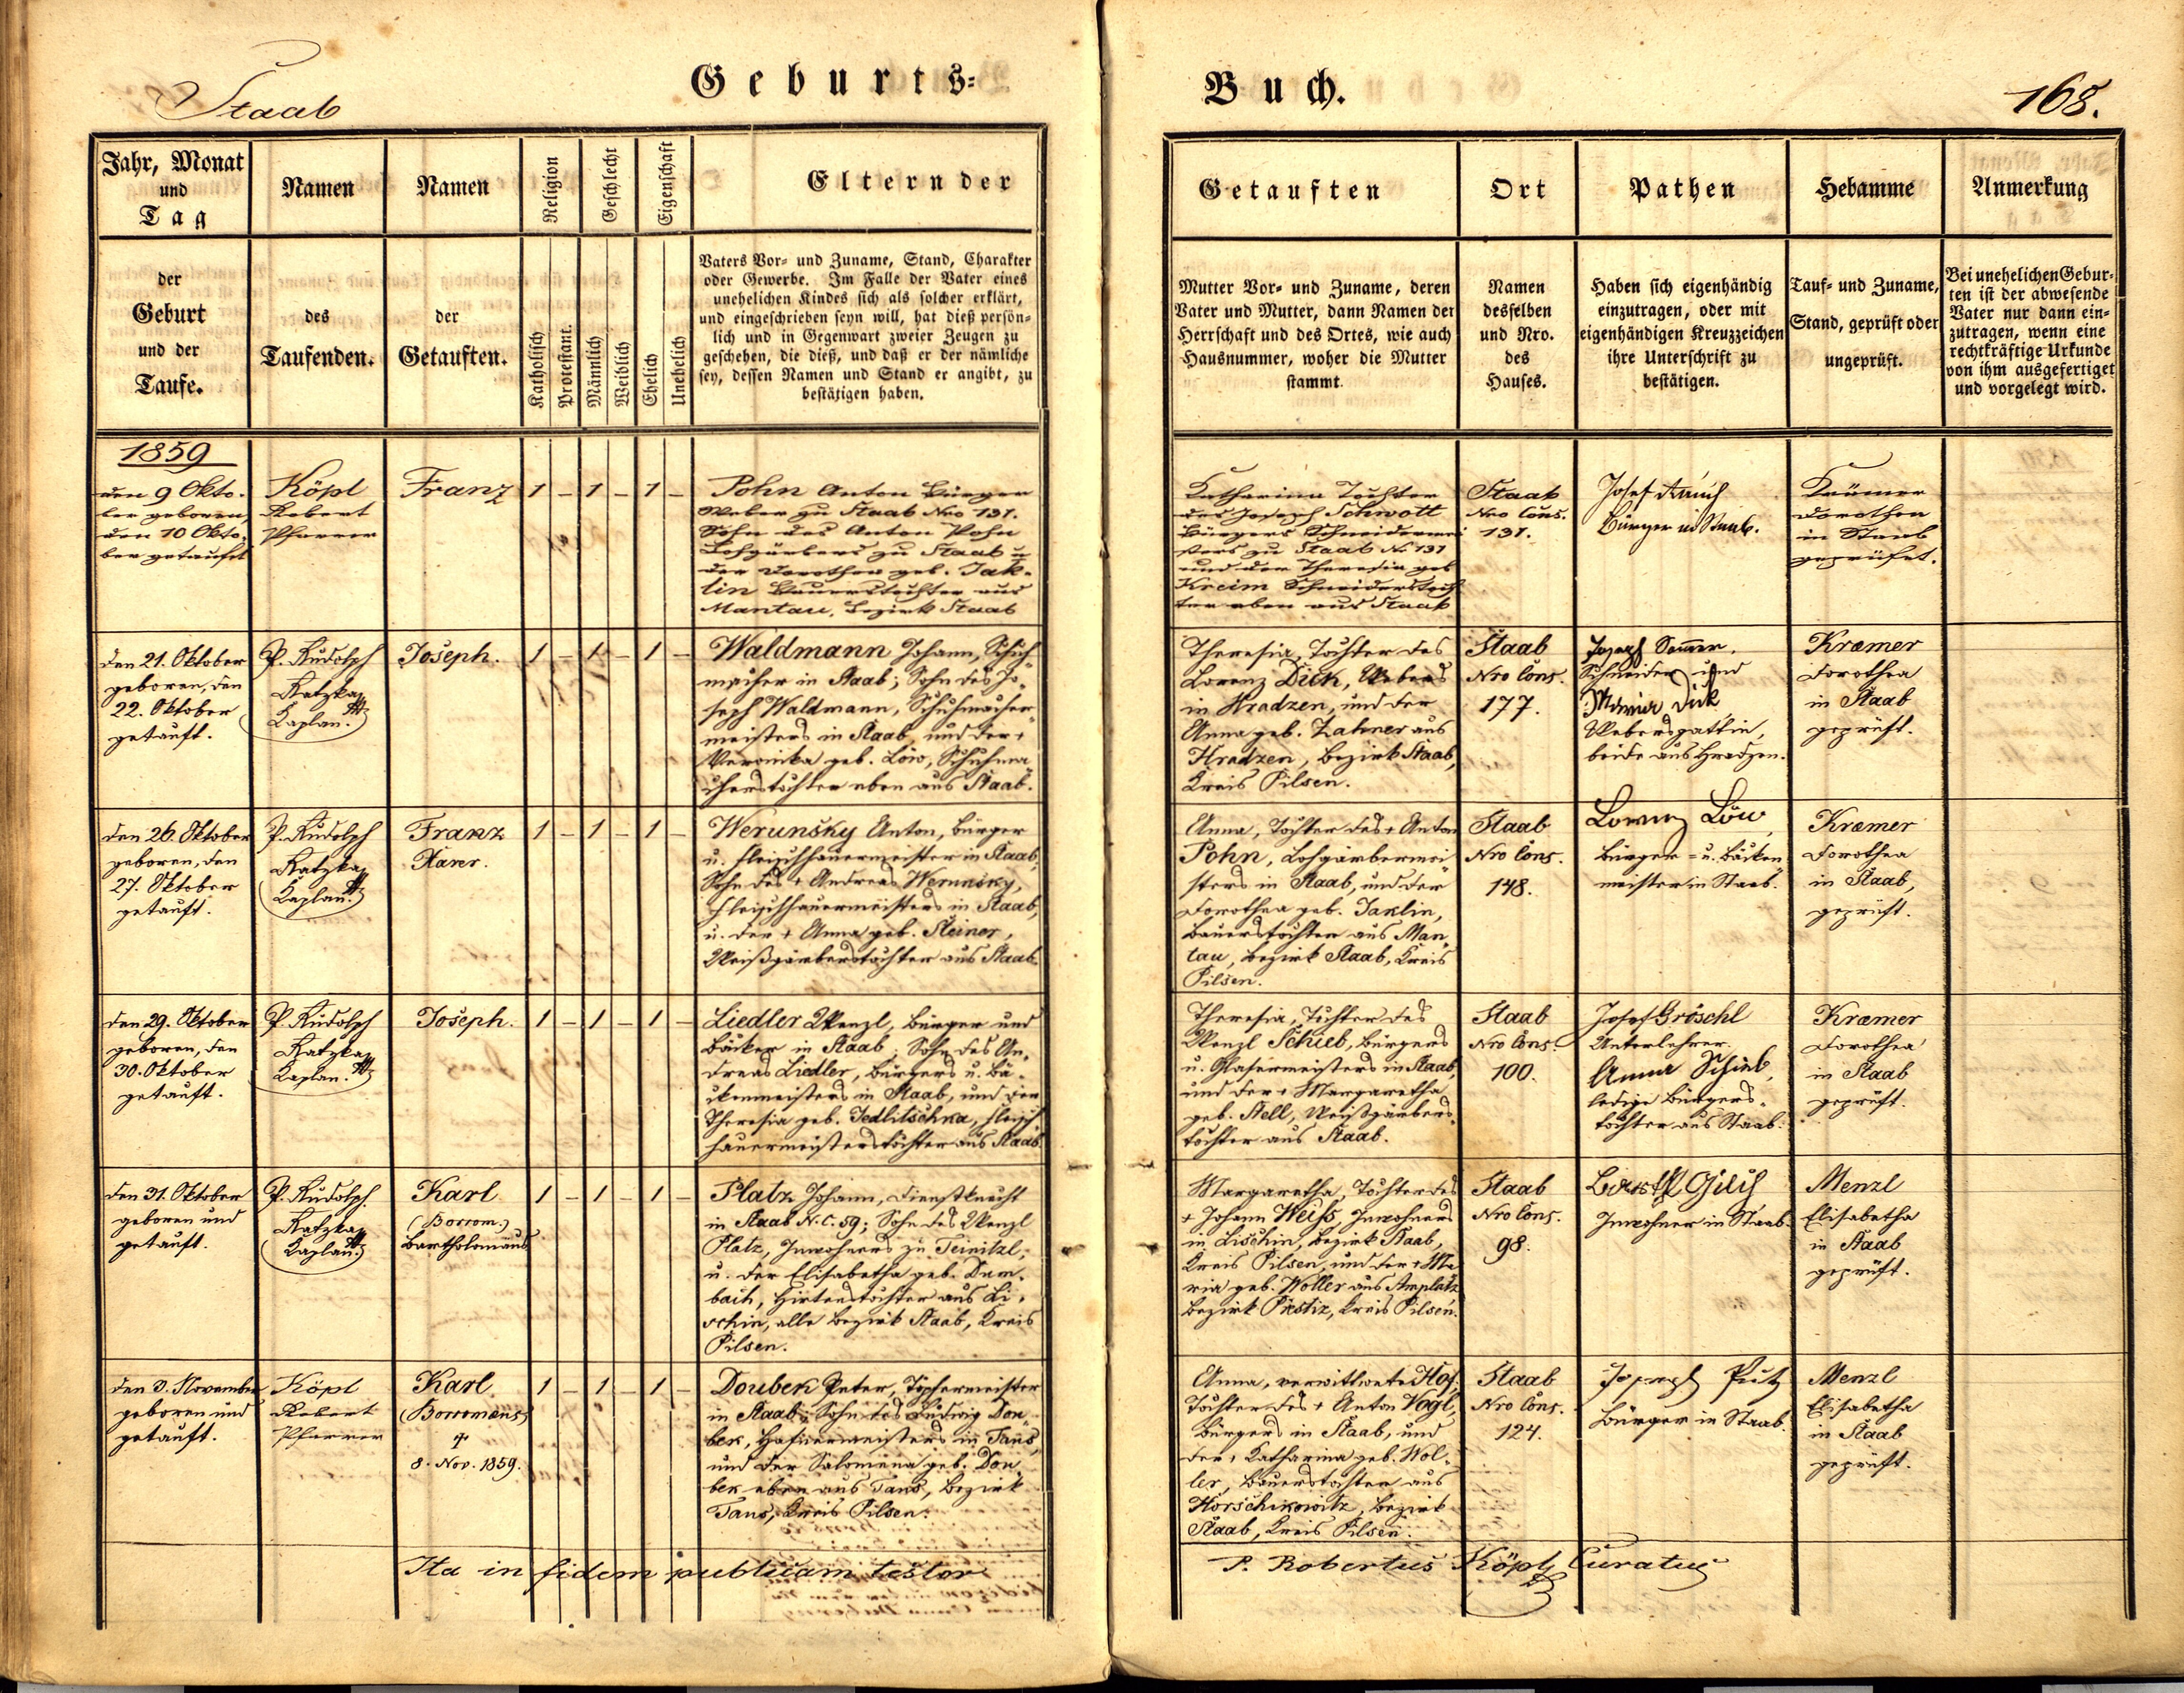 Staab
Geburts-
Buch.
168.
Jahr, Monat
und
Tag
Namen
Namen
Religion
Geschlecht
Eigenschaft
Eltern der
Getauften
Ort
Pathen
Hebamme
Anmerkung
der
Geburt
und der
Taufe.
des
Taufenden.
der
Getauften.
Katholisch
Protestant.
Männlich
Weiblich
Ehelich
Unehelich
Vaters Vor- und Zuname, Stand, Charakter
oder Gewerbe. Im Falle der Vater eines
unehelichen Kindes sich als solcher erklärt,
und eingeschrieben seyn will, hat dieß persön-
lich und in Gegenwart zweier Zeugen zu
geschehen, die dieß, und daß er der nämliche
sey, dessen Namen und Stand er angibt, zu
bestätigen haben.
Mutter Vor- und Zuname, deren
Vater und Mutter, dann Namen der
Herrschaft und des Ortes, wie auch
Hausnummer, woher die Mutter
stammt
Namen
desselben
und Nro.
des
Hauses.
Haben sich eigenhändig
einzutragen, oder mit
eigenhändigen Kreuzzeichen
ihre Unterschrift zu
bestätigen.
Tauf- und Zuname,
Stand, geprüft oder
ungeprüft.
Bei unehelichen Gebur-
ten ist der abwesende
Vater nur dann ein-
zutragen, wenn eine
rechtkräftige Urkunde
von ihm ausgefertiget
und vorgelegt wird.
1859
den 9 Okto-
ber geboren,
den 10 Okto-
ber getauft
Köpl
Robert
Pfarrer
Franz
1 – 1 – 1 –
Pohn Anton Bürger
Weber zu Staab Nro 131.
Sohn des Anton Pohn
Lohgärbers zu Staab u
der Dorothea geb. Jak-
lin Bauerstochter aus
Mantau, Bezirk Staab
Katharina Tochter
des Joseph Schwott
Bürgers Schneidermei
sters zu Staab No 131
und der Theresia geb
Kreim Schneiderstoch
ter eben aus Staab
Staab
Nro Cons.
131.
Josef
Bürger in Staab.
Krämer
Dorothea
in Staab
geprüfet.
den 21. Oktober
geboren, den
22. Oktober
getauft.
P. Rudolph
Katzka
Kaplan.
Joseph.
1 – 1 – 1 –
Waldmann Johann, Schuh
macher in Staab; Sohn des Jo-
seph Waldmann, Schuhmacher-
meisters in Staab, und der +
Veronika geb. Löw, Schuhma
cherstochter eben aus Staab.
Theresia, Tochter des
Lorenz Dick, Webers
in Hradzen, und der
Anna geb. Zahner aus
Hradzen, Bezirk Staab,
Kreis Pilsen.
Staab
Nro Cons.
177.
Joseph
Schneider und
Maria Dick
Webersgattin,
beide aus Hradzen.
Kræmer
Dorothea
in Staab
geprüft.
den 26. Oktober
geboren, den
27. Oktober
getauft.
P. Rudolph
Katzka
Kaplan.
Franz
Xaver.
1 – 1 – 1 –
Werunsky Anton, Bürger
u. Fleischhauermeister in Staab,
Sohn des + Andreas Werunsky,
Fleischhauermeisters in Staab,
u. der + Anna geb. Steiner,
Weißgärberstochter aus Staab.
Anna, Tochter des + Anton
Pohn, Lohgärbermei
sters in Staab, und der
Dorothea geb. Jaklin,
Bauerstochter aus Man-
tau, Bezirk Staab, Kreis
Pilsen.
Staab
Nro Cons.
148.
Lorenz Löw,
Bürger- u. Bäcken
meister in Staab.
Kræmer
Dorothea
in Staab,
geprüft.
den 29. Oktober
geboren, den
30. Oktober
getauft.
P. Rudolph
Katzka
Kaplan.
Joseph.
1 – 1 – 1 –
Liedler Wenzl, Bürger und
Bäcker in Staab. Sohn des An-
dreas Liedler, Bürgers u. Bä-
ckermeisters in Staab, und der
Theresia geb. Jedlitschka, Fleisch
hauermeisterstochter aus Staab.
Theresia, Tochter des
Wenzl Schieb, Bürgers
u. Glasermeisters in Staab,
und der + Margaretha
geb. Stell, Weißgärbers-
tochter aus Staab.
Staab
Nro Cons.
100.
Josef Gröschl
Unterlehrer.
Anna Schieb,
ledige Bürgers-
tochter aus Staab.
Kræmer
Dorothea
in Staab
geprüft.
den 31. Oktober
geboren und
getauft.
P. Rudolph
Katzka
Kaplan.
Karl
(Borrom.)
Bartholomäus
1 – 1 – 1 –
Platz Johann, Dienstknecht
in Staab N.C. 59; Sohn des Wenzl
Platz, Inwohners zu Teinitzl,
u. der Elisabetha geb. Dum-
bait, Hirtenstochter aus Li-
schin, alle Bezirk Staab, Kreis
Pilsen.
Margaretha, Tochter des
+ Johann Weiß, Inwohners
in Lischin, Bezirk Staab,
Kreis Pilsen, und der + Ma
ria geb. Woller aus Amplatz
Bezirk Přestiz, Kreis Pilsen.
Staab
Nro Cons.
98.
Inwohner in Staab.
Menzl
Elisabetha
in Staab
geprüft.
den 3. November
geboren und
getauft.
Köpl
Robert
Pfarrer
Karl
(Borromäus)
+
8. Nov. 1859.
1 – 1 – 1 –
Doubek Peter, Töpfermeister
in Staab; Sohn des Ludwig Dou-
bek, Hafnermeisters in Taus,
und der Salomena geb. Dou
bek eben aus Taus, Bezirk
Taus, Kreis Pilsen.
Anna, verwittwete Hof,
Tochter des + Anton Vogl,
Bürgers in Staab, und
der + Katharina geb. Wol-
ler, Bauerstochter aus
Horschikowitz, Bezirk
Staab, Kreis Pilsen.
Staab
Nro Cons.
124.
Joseph Putz
Bürger in Staab.
Menzl
Elisabetha
in Staab
geprüft.
Ita in fidem publicam testor
P. Robertus Köpl, Curatus